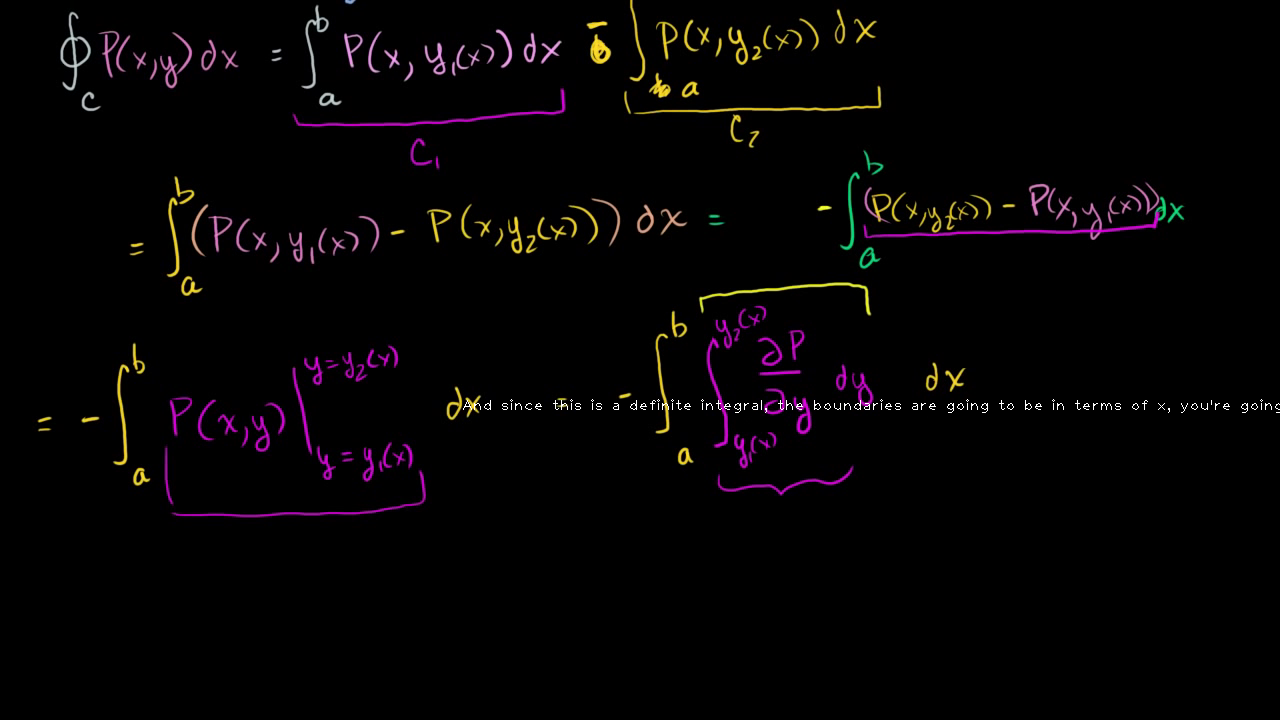 ∮_C P(x,y) dx = ∫_a^b P(x, y₁(x)) dx - ∫_a P(x, y₂(x)) dx
C₁ C₂
= ∫_a^b (P(x, y₁(x)) - P(x, y₂(x))) dx = - ∫_a^b (P(x, y₂(x)) - P(x, y₁(x))) dx
= - ∫_a^b P(x,y) |_{y = y₁(x)}^{y = y₂(x)} dx = - ∫_a^b ∫_{y₁(x)}^{y₂(x)} ∂P/∂y dy dx
And since this is a definite integral, the boundaries are going to be in terms of x, you're going